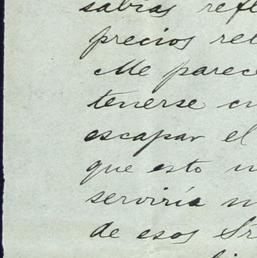 sabias refle
precios rel
Me parece
tenerse cu
escapar el
que esto n
serviría m
de esos Sr